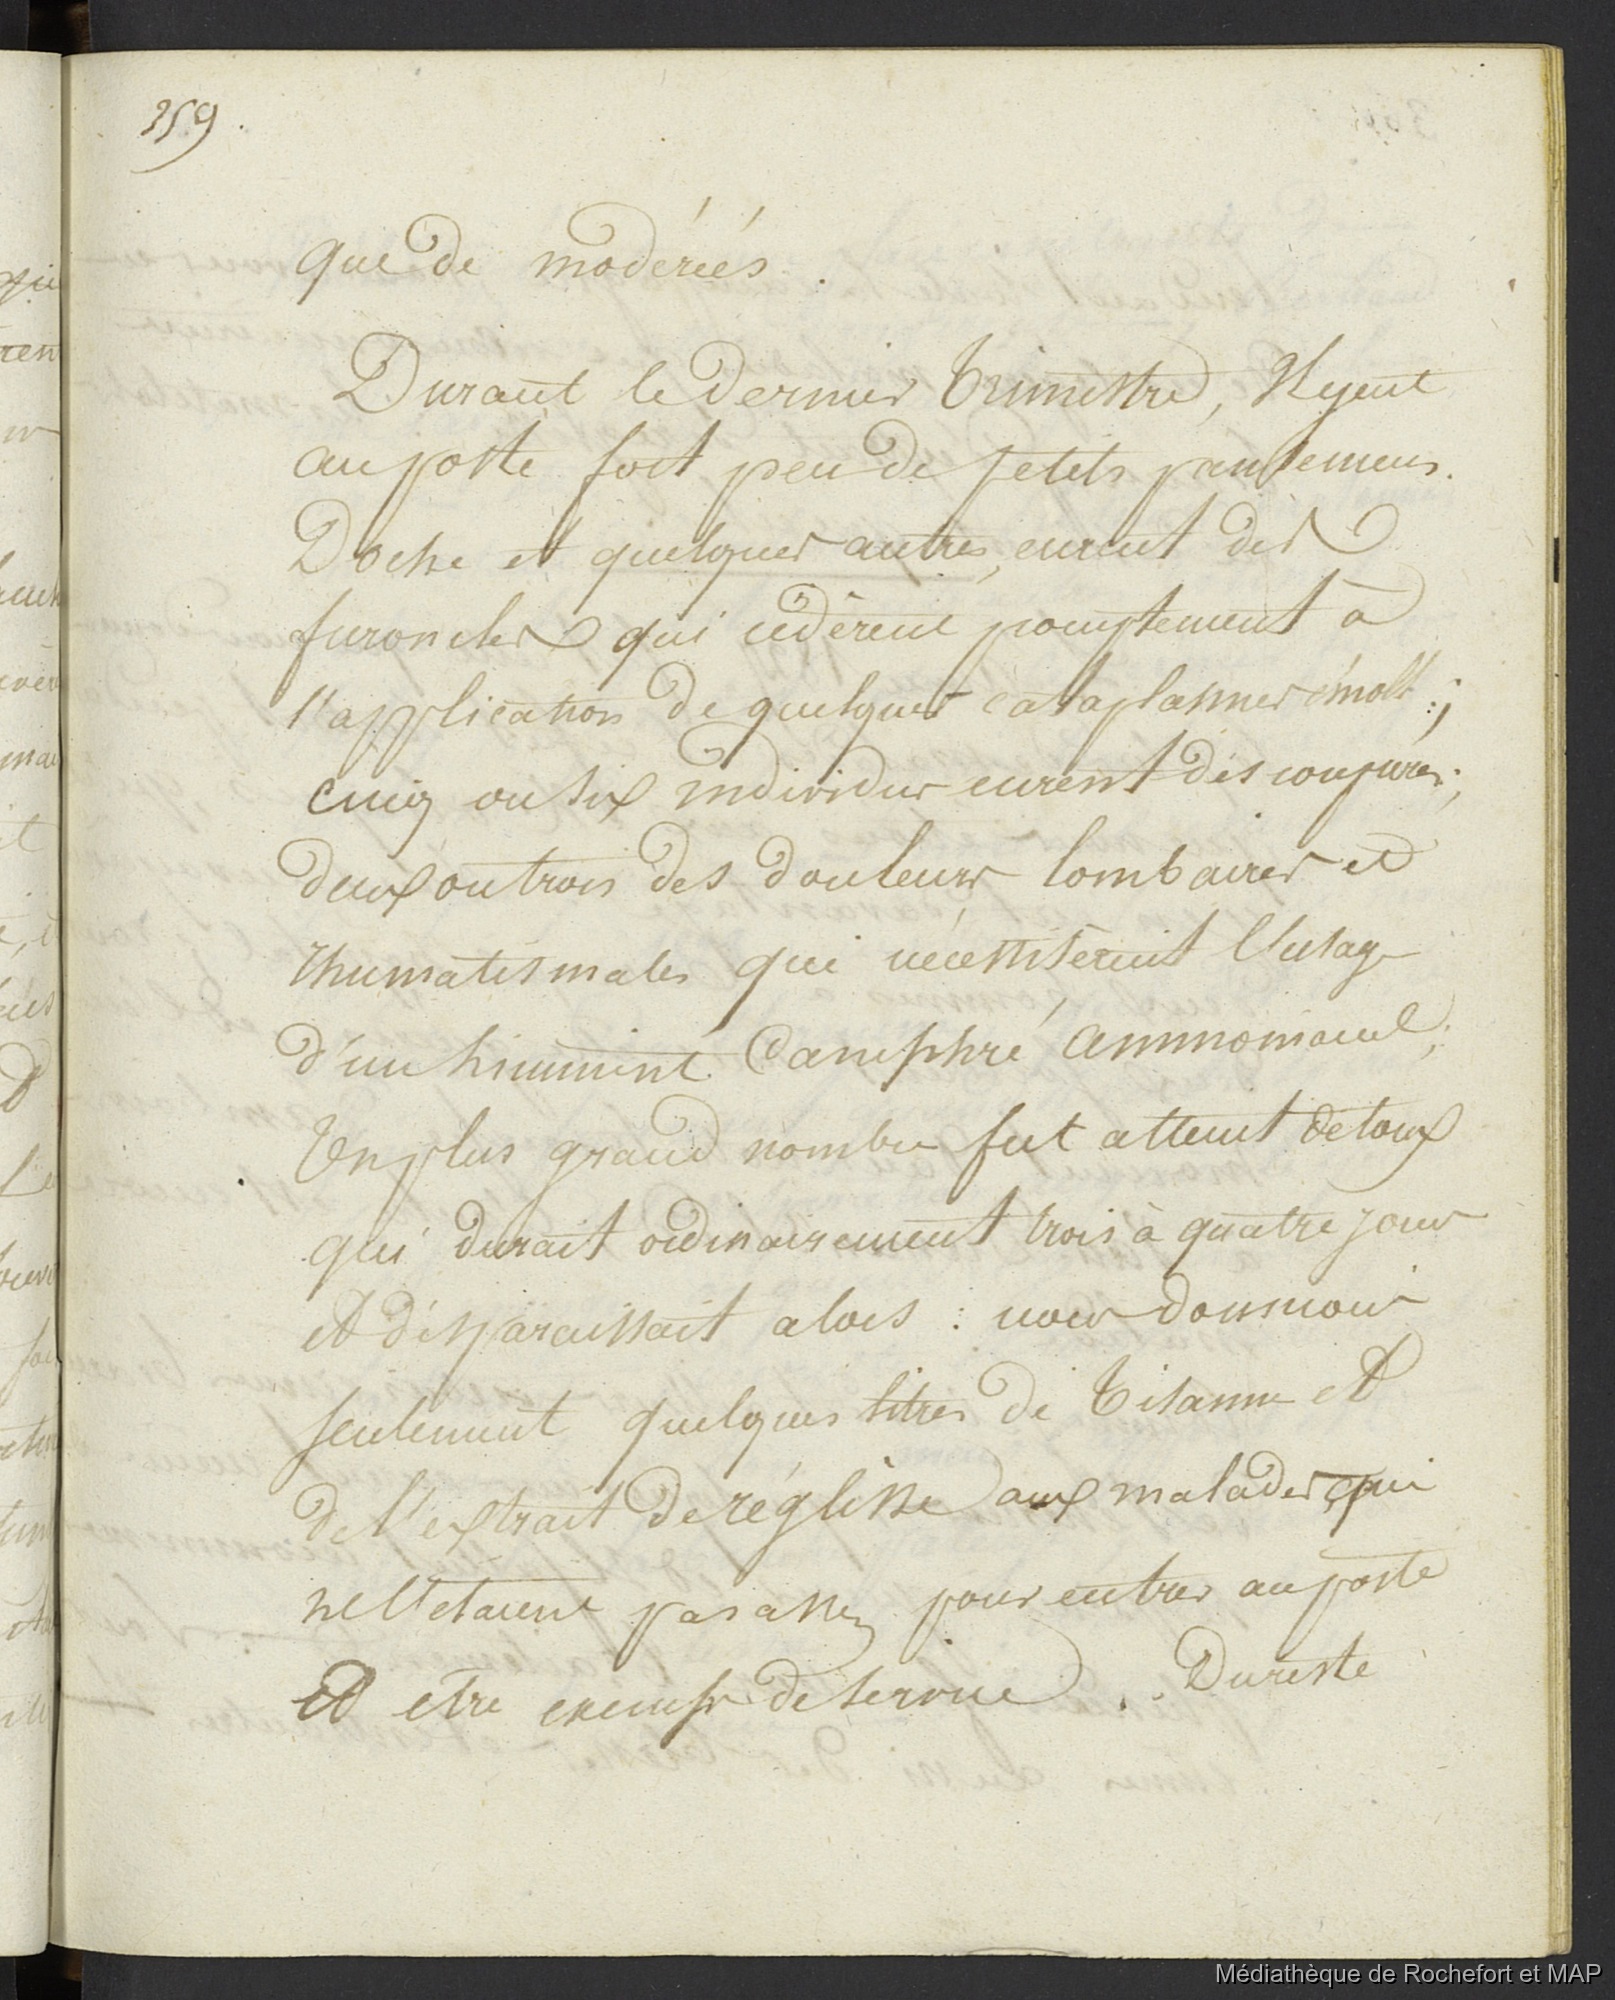 359.
que de modérées.
Durant le dernier trimestre, Il y eut
au poste fort peu de petits pansemens.
Doche et quelques autres, eurent des
furoncles qui cédèrent promptement à
l'application de quelques cataplasmes émoll:;
cinq ou six individus eurent des coupures;
deux ou trois des douleurs lombaires et
rhumatismales qui nécessitèrent l'usage
d'un liniment Camphré ammoniacal;
Un plus grand nombre fut atteint de toux
qui durait ordinairement trois à quatre jours
et disparaissait alors : nous donnions
seulement quelques litres de tisanne et
de l'extrait de réglisse aux malades qui
ne l'étaient pas assez pour entrer au poste
et etre exempts de service. Du reste
Médiathèque de Rochefort et MAP